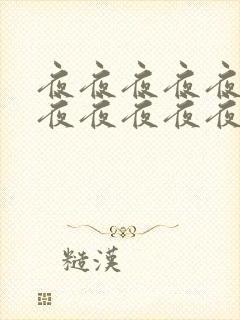 夜夜夜夜夜
夜夜夜夜夜
糙漢